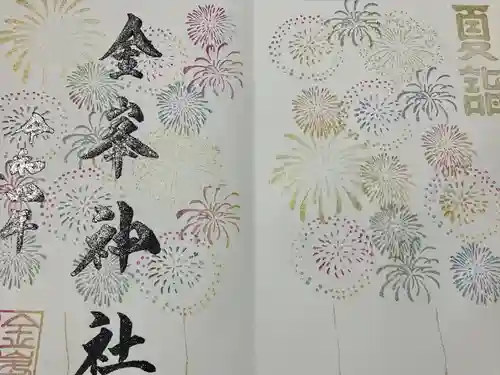 夏詣
金峯神社
令和四年